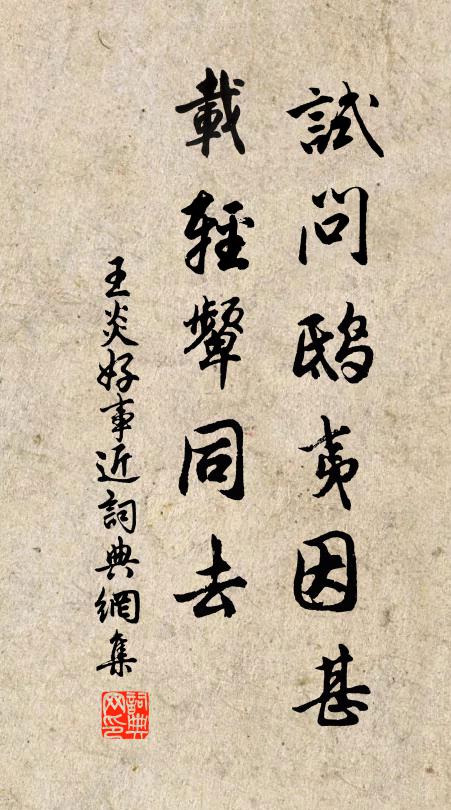 試問鴟夷因甚
載輕顰同去
王炎好事近詞典網集
詞典网印